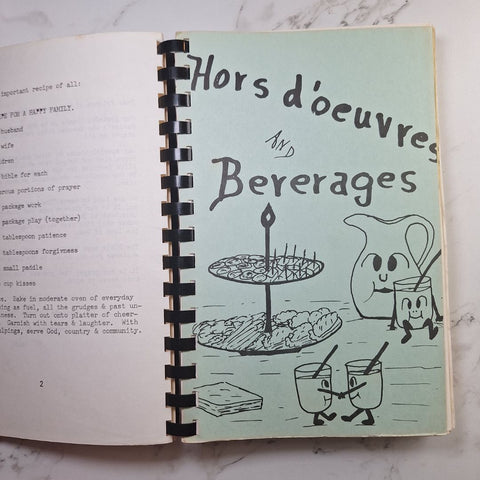 important recipe of all:
FOR A HAPPY FAMILY.
husband
wife
bible for each
portions of prayer
package work
package play (together)
tablespoon patience
tablespoons forgivness
small paddle
cup kisses
Bake in moderate oven of everyday
as fuel, all the grudges & past un-
Turn out onto platter of cheer-
Garnish with tears & laughter. With
serve God, country & community.
2
Hors d'oeuvres
AND
Beverages